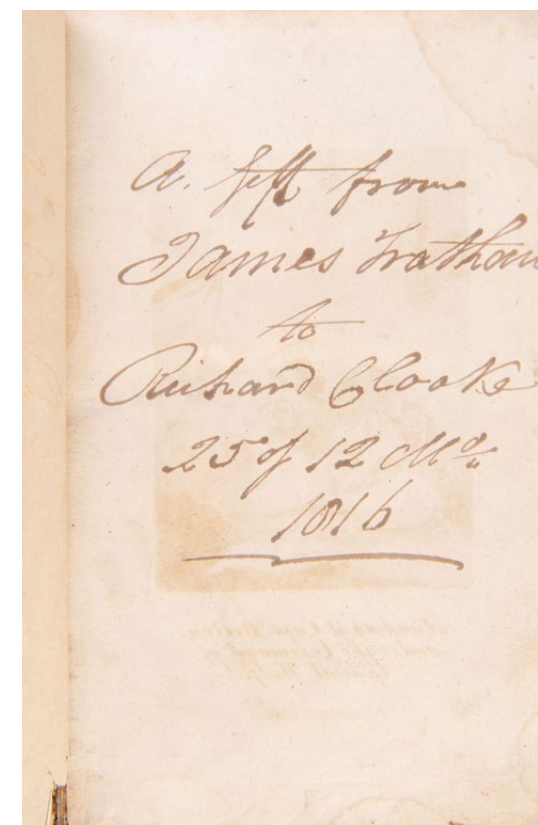 A. Gift from
James Trathan
to
Richard Clooke
25 of 12 Mo.
1816